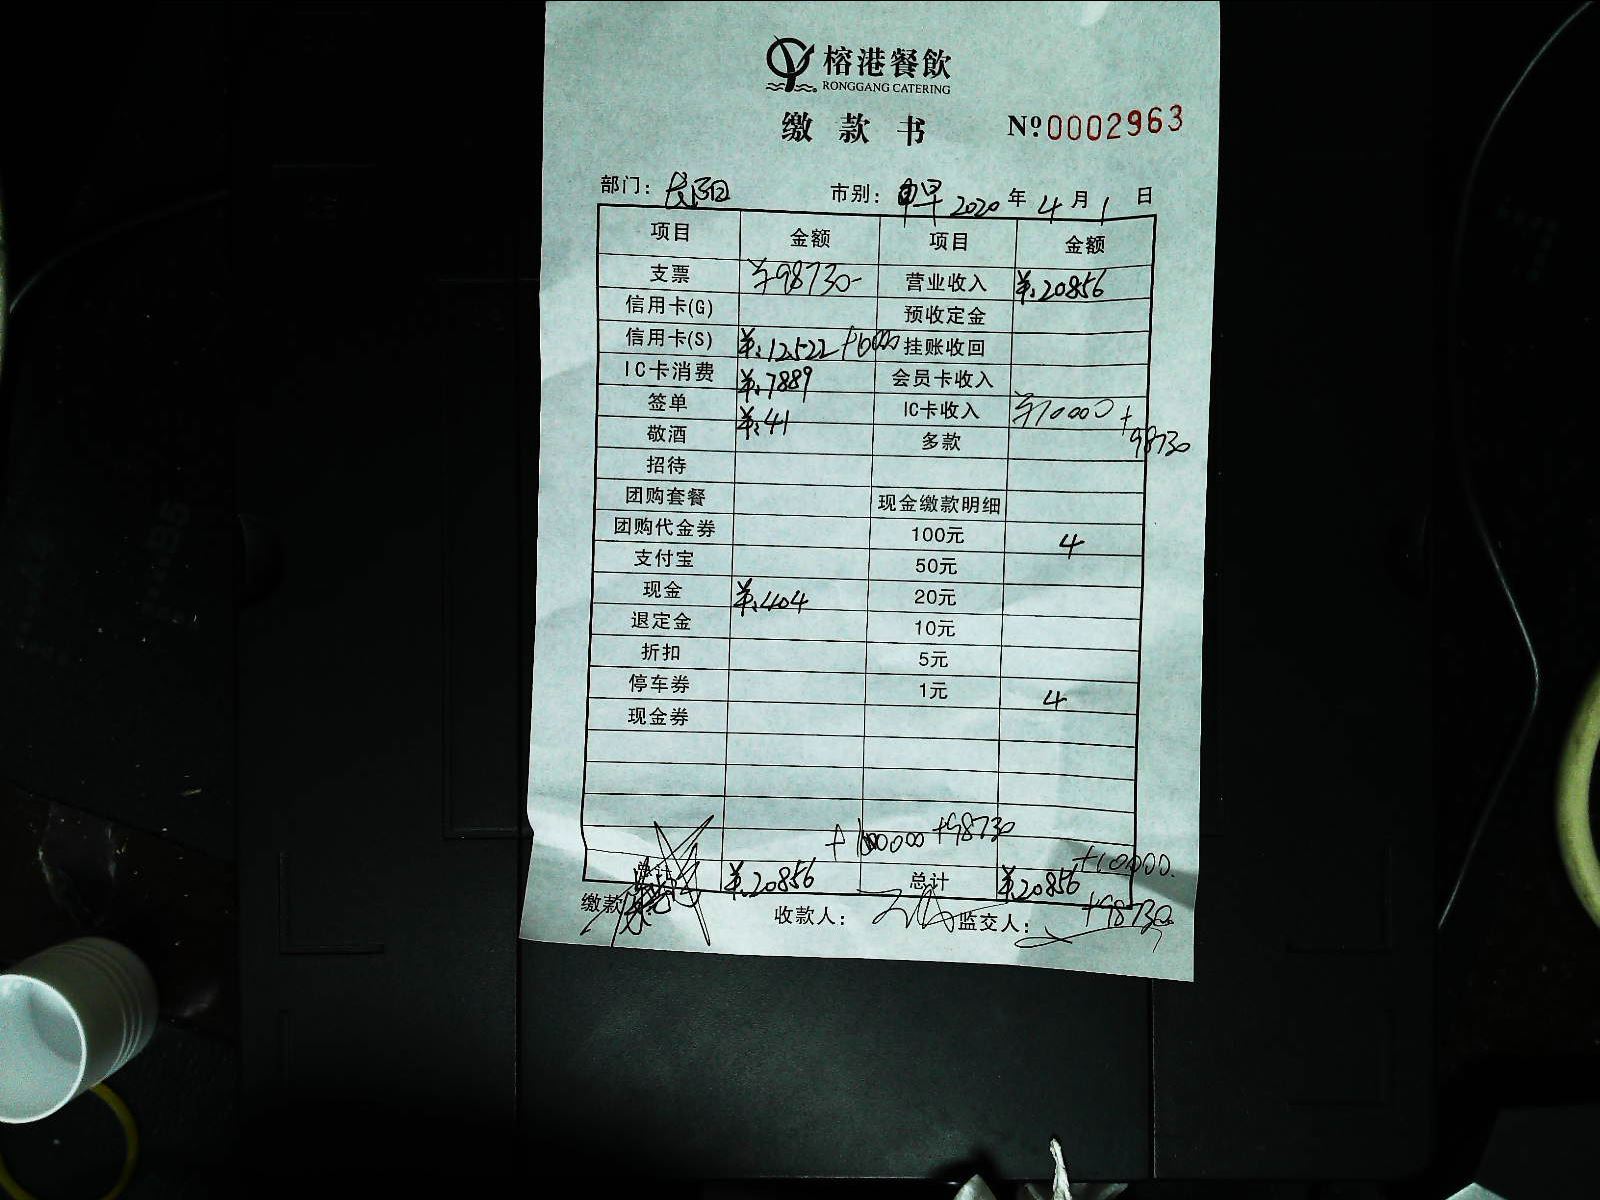 榕港餐飲
RONGGANG CATERING
缴款书 Nº0002963
部门: 长阳 市别: 早 2020年4月1日
项目 金额 项目 金额
支票 ¥98730- 营业收入 ¥:20856
信用卡(G) 预收定金
信用卡(S) ¥:12522 挂账收回
IC卡消费 ¥:7889 会员卡收入
签单 ¥:41 IC卡收入 ¥10000+
敬酒 多款 98730
招待
团购套餐 现金缴款明细
团购代金券 100元 4
支付宝 50元
现金 ¥:404 20元
退定金 10元
折扣 5元
停车券 1元 4
现金券
+98730
+10000.
¥:20856 总计 ¥:20856
+98730
缴款 收款人: 监交人: